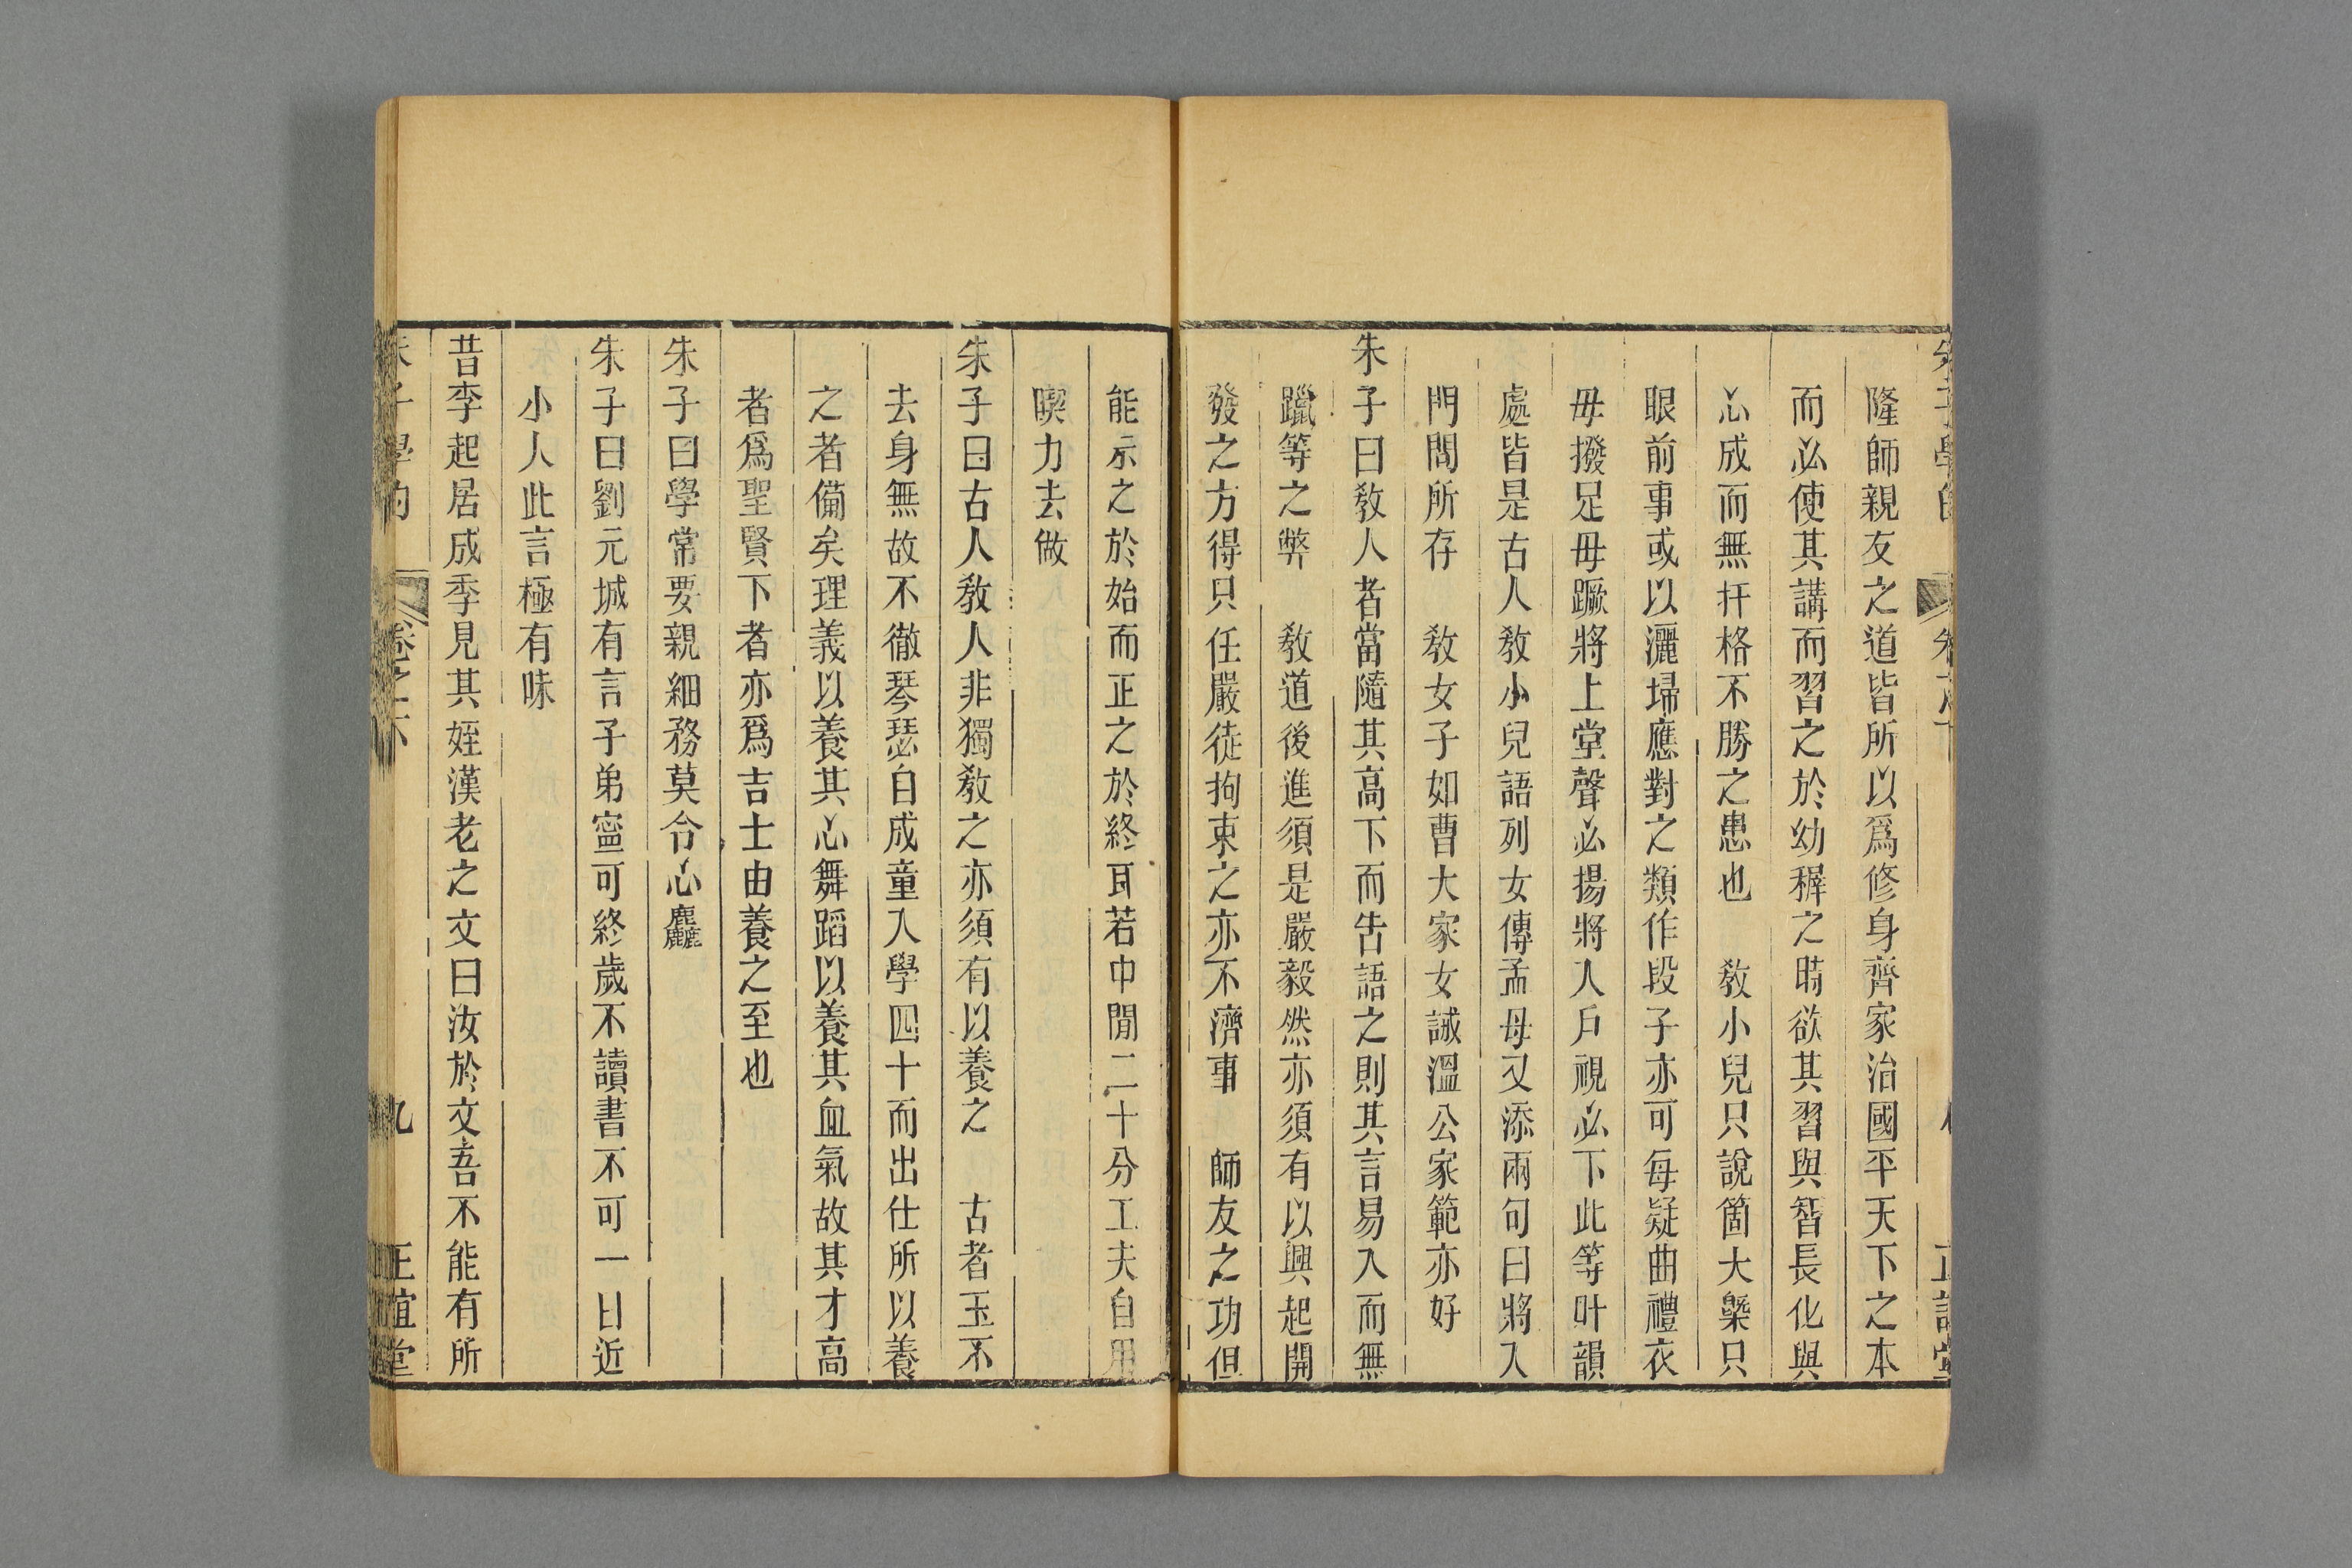 隆師親友之道皆所以爲修身齊家治國平天下之本
而必使其講而習之於幼穉之時欲其習與智長化與
心成而無扞格不勝之患也　教小兒只說箇大槩只
眼前事或以灑埽應對之類作段子亦可每疑曲禮衣
毋撥足毋蹶將上堂聲必揚將入戶視必下此等叶韻
處皆是古人教小兒語列女傳孟母又添兩句曰將入
門問所存　教女子如曹大家女誡溫公家範亦好
朱子曰教人者當隨其高下而告語之則其言易入而無
躐等之弊　教道後進須是嚴毅然亦須有以興起開
發之方得只任嚴徒拘束之亦不濟事　師友之功但
能示之於始而正之於終耳若中閒二十分工夫自用
喫力去做
朱子曰古人教人非獨教之亦須有以養之　古者玉不
去身無故不徹琴瑟自成童入學四十而出仕所以養
之者備矣理義以養其心舞蹈以養其血氣故其才高
者爲聖賢下者亦爲吉士由養之至也
朱子曰學常要親細務莫令心麤
朱子曰劉元城有言子弟寍可終歲不讀書不可一日近
小人此言極有味
昔李起居成季見其姪漢老之文曰汝於文吾不能有所
朱子學的　卷之下　九　正誼堂